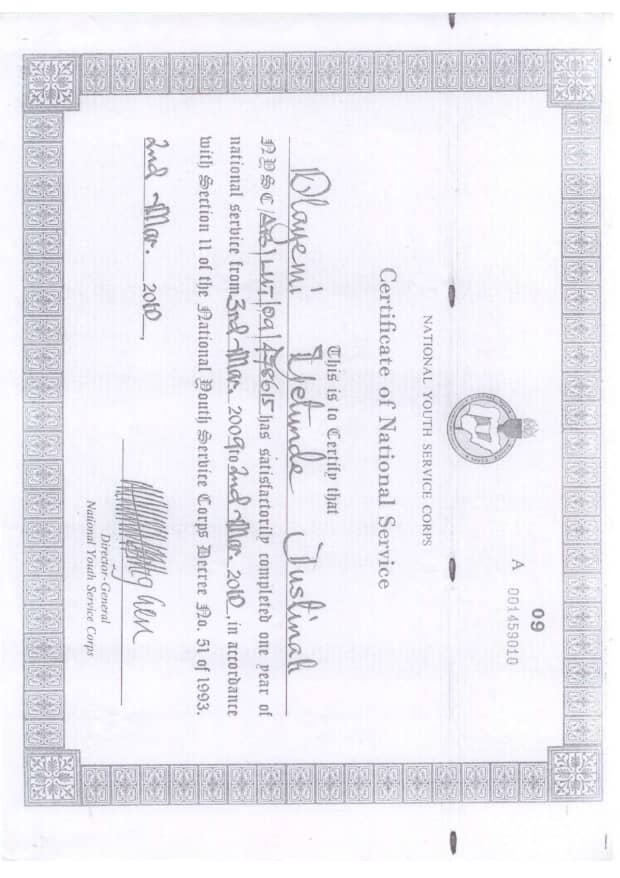 09
A 001459010
NATIONAL YOUTH SERVICE CORPS
Certificate of National Service
This is to Certify that
Olayemi Yetunde Justinah
NYSC/ has satisfactorily completed one year of
national service from 3rd Mar. 2009 to 2nd Mar. 2010, in accordance
with Section 11 of the National Youth Service Corps Decree No. 51 of 1993.
2nd Mar. 2010
Director-General
National Youth Service Corps